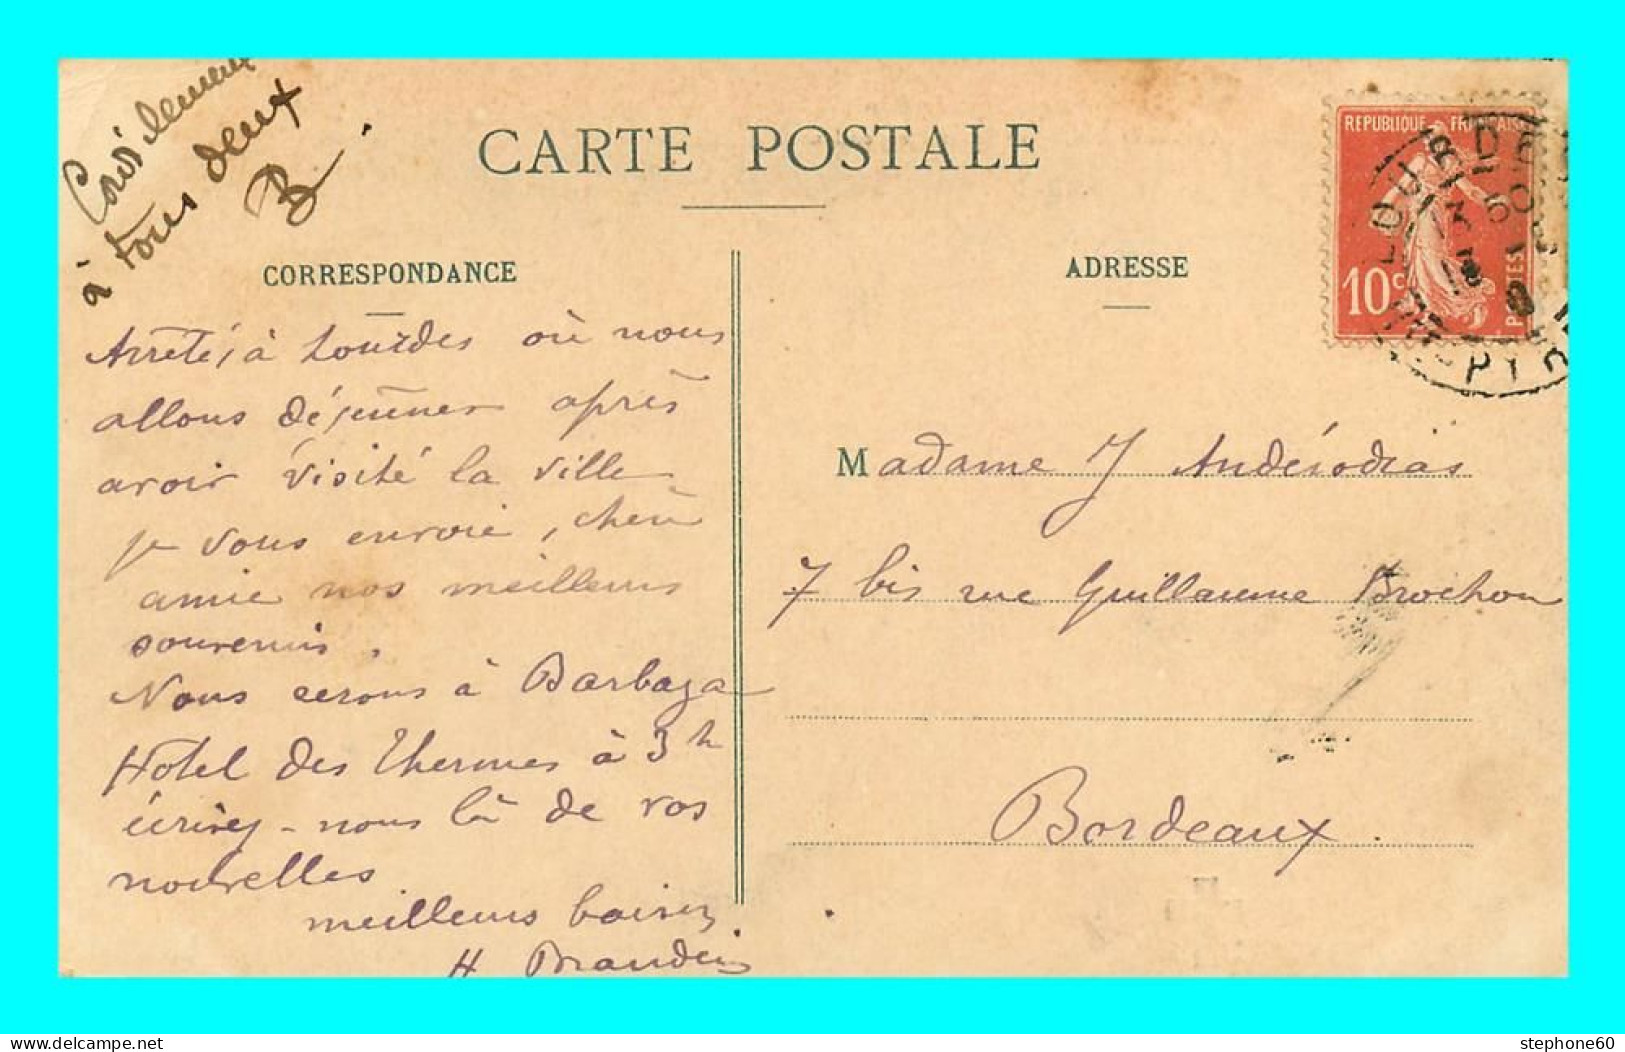 à tous deux
B.
CARTE POSTALE
CORRESPONDANCE
ADRESSE
REPUBLIQUE FRANÇAISE
10c
POSTES
Arrêté, à Lourdes où nous
allons déjeuner après
avoir visité la ville
je vous envoie, chère
amie nos meilleurs
souvenirs.
Nous serons à Barbaza
Hotel des Thermes à 3h
écrivez-nous là de vos
nouvelles
meilleurs baisers
H
Madame J
7 bis rue Guillaume Brochon
Bordeaux.
stephone60